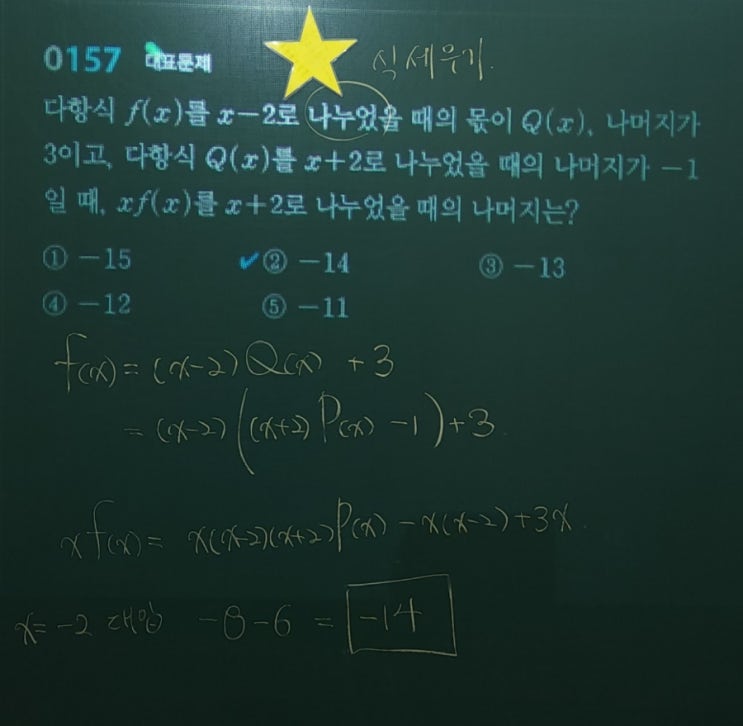 0157 대표문제 식세우기.
다항식 f(x)를 x-2로 나누었을 때의 몫이 Q(x), 나머지가
3이고, 다항식 Q(x)를 x+2로 나누었을 때의 나머지가 -1
일 때, xf(x)를 x+2로 나누었을 때의 나머지는?
① -15 ② -14 ③ -13
④ -12 ⑤ -11
f(x) = (x-2)Q(x) + 3
= (x-2)((x+2)P(x) - 1) + 3
xf(x) = x(x-2)(x+2)P(x) - x(x-2) + 3x
x = -2 대입 -8-6 = -14